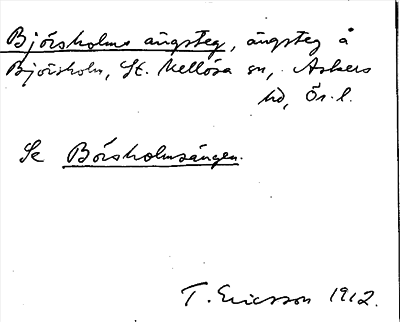 Bjórsholms ängsteg, ängsteg å
Bjórsholm, St. Mellósa sn, Askers
hd, Ör. l.
Se Bórsholmsängen.
T. Ericsson 1912.